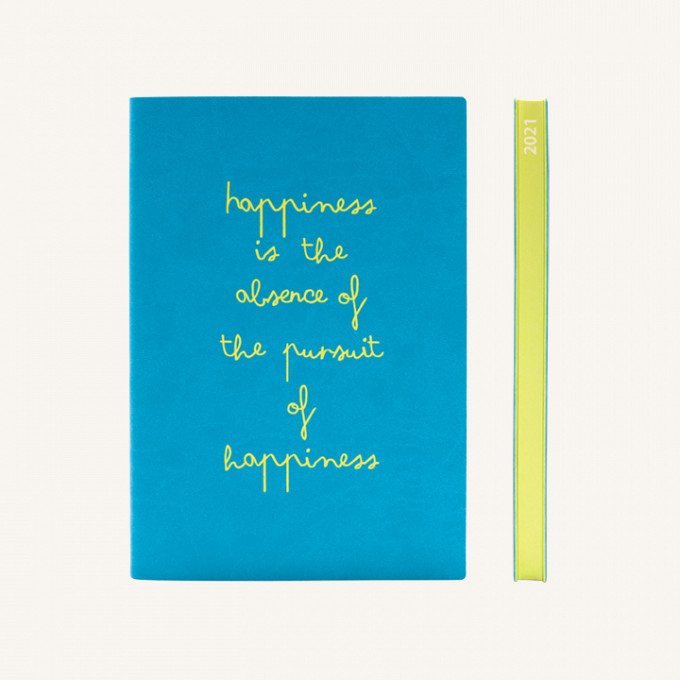 happiness
is the
absence of
the pursuit
of
happiness
2021